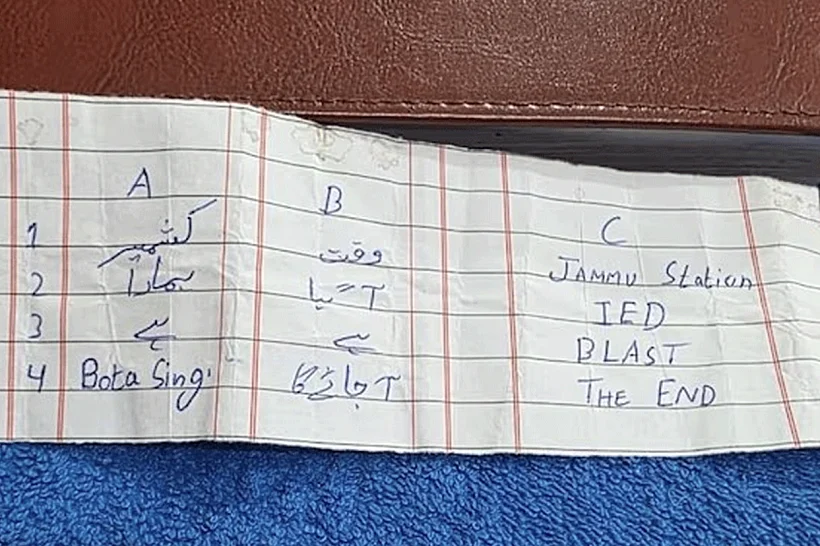 A B C
1 کشمیر وقت JAMMU Station
2 ہمارا آگیا IED
3 ہے ہے BLAST
4 Bota Singh آجائے گا THE END